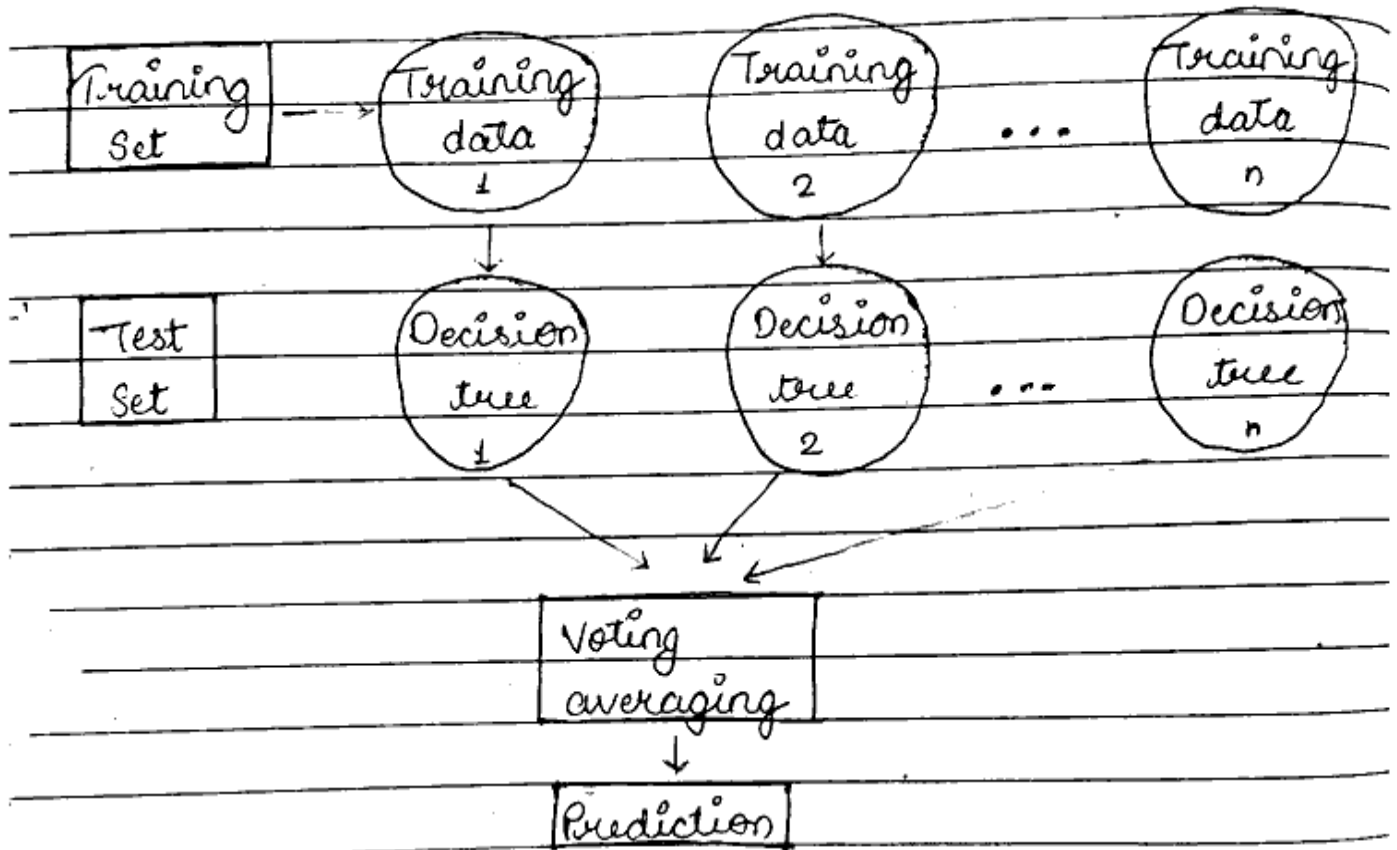 Training
Set
Training
data
1
Training
data
2
...
Training
data
n
Test
Set
Decision
tree
1
Decision
tree
2
...
Decision
tree
n
Voting
averaging
Prediction